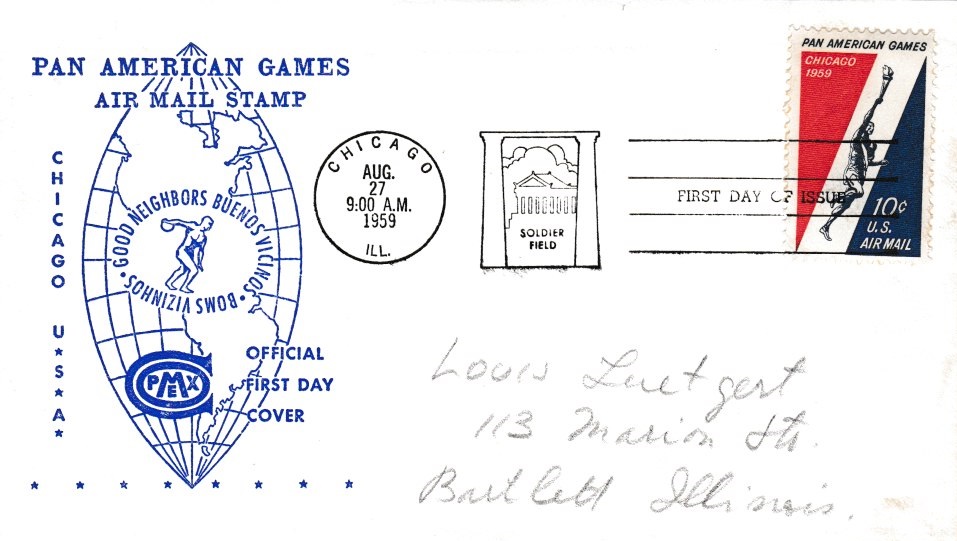 PAN AMERICAN GAMES
AIR MAIL STAMP
CHICAGO U★S★A★
GOOD NEIGHBORS BUENOS VICINOS • BOMS VIZINHOS •
CPMEX
OFFICIAL
FIRST DAY
COVER
CHICAGO
AUG.
27
9:00 A.M.
1959
ILL.
SOLDIER
FIELD
FIRST DAY OF ISSUE
PAN AMERICAN GAMES
CHICAGO
1959
10¢
U.S.
AIR MAIL
Louis Luetgert
113 Marion Str.
Bartlett Illinois.